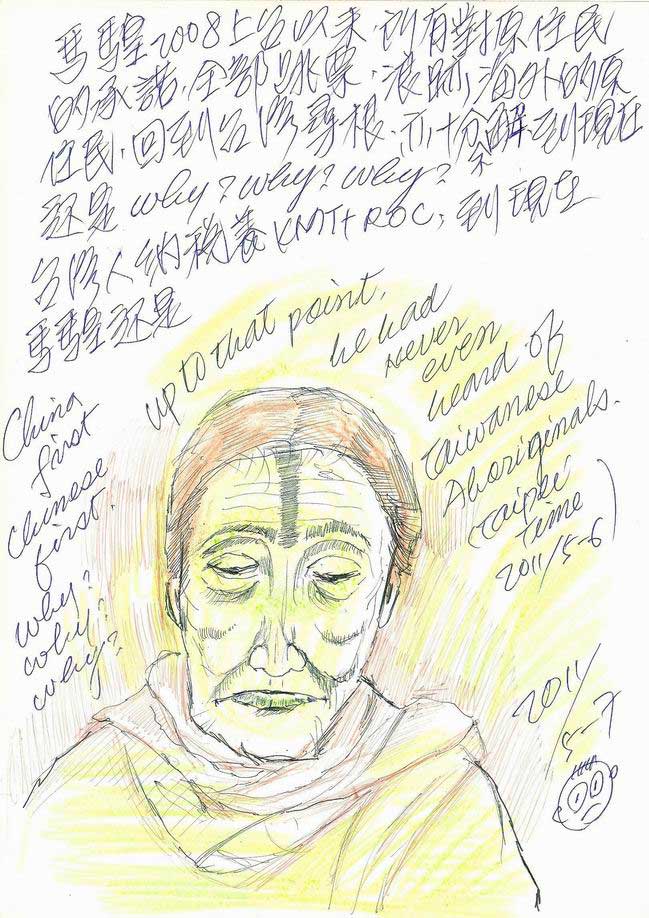 馬騜2008上台以来,所有對原住民
的承諾,全部跳票,浪跡海外的原
住民,回到台灣尋根,亦十分不解,到現在
还是 why? why? why?
台灣人納税養KMT+ROC,到現在
馬騜还是
China
first
Chinese
first.
why?
why?
why?
up to that point,
he had
never
even
heard of
Taiwanese
Aboriginals.
(Taipei
Time
2011/5-6)
2011/
5-7